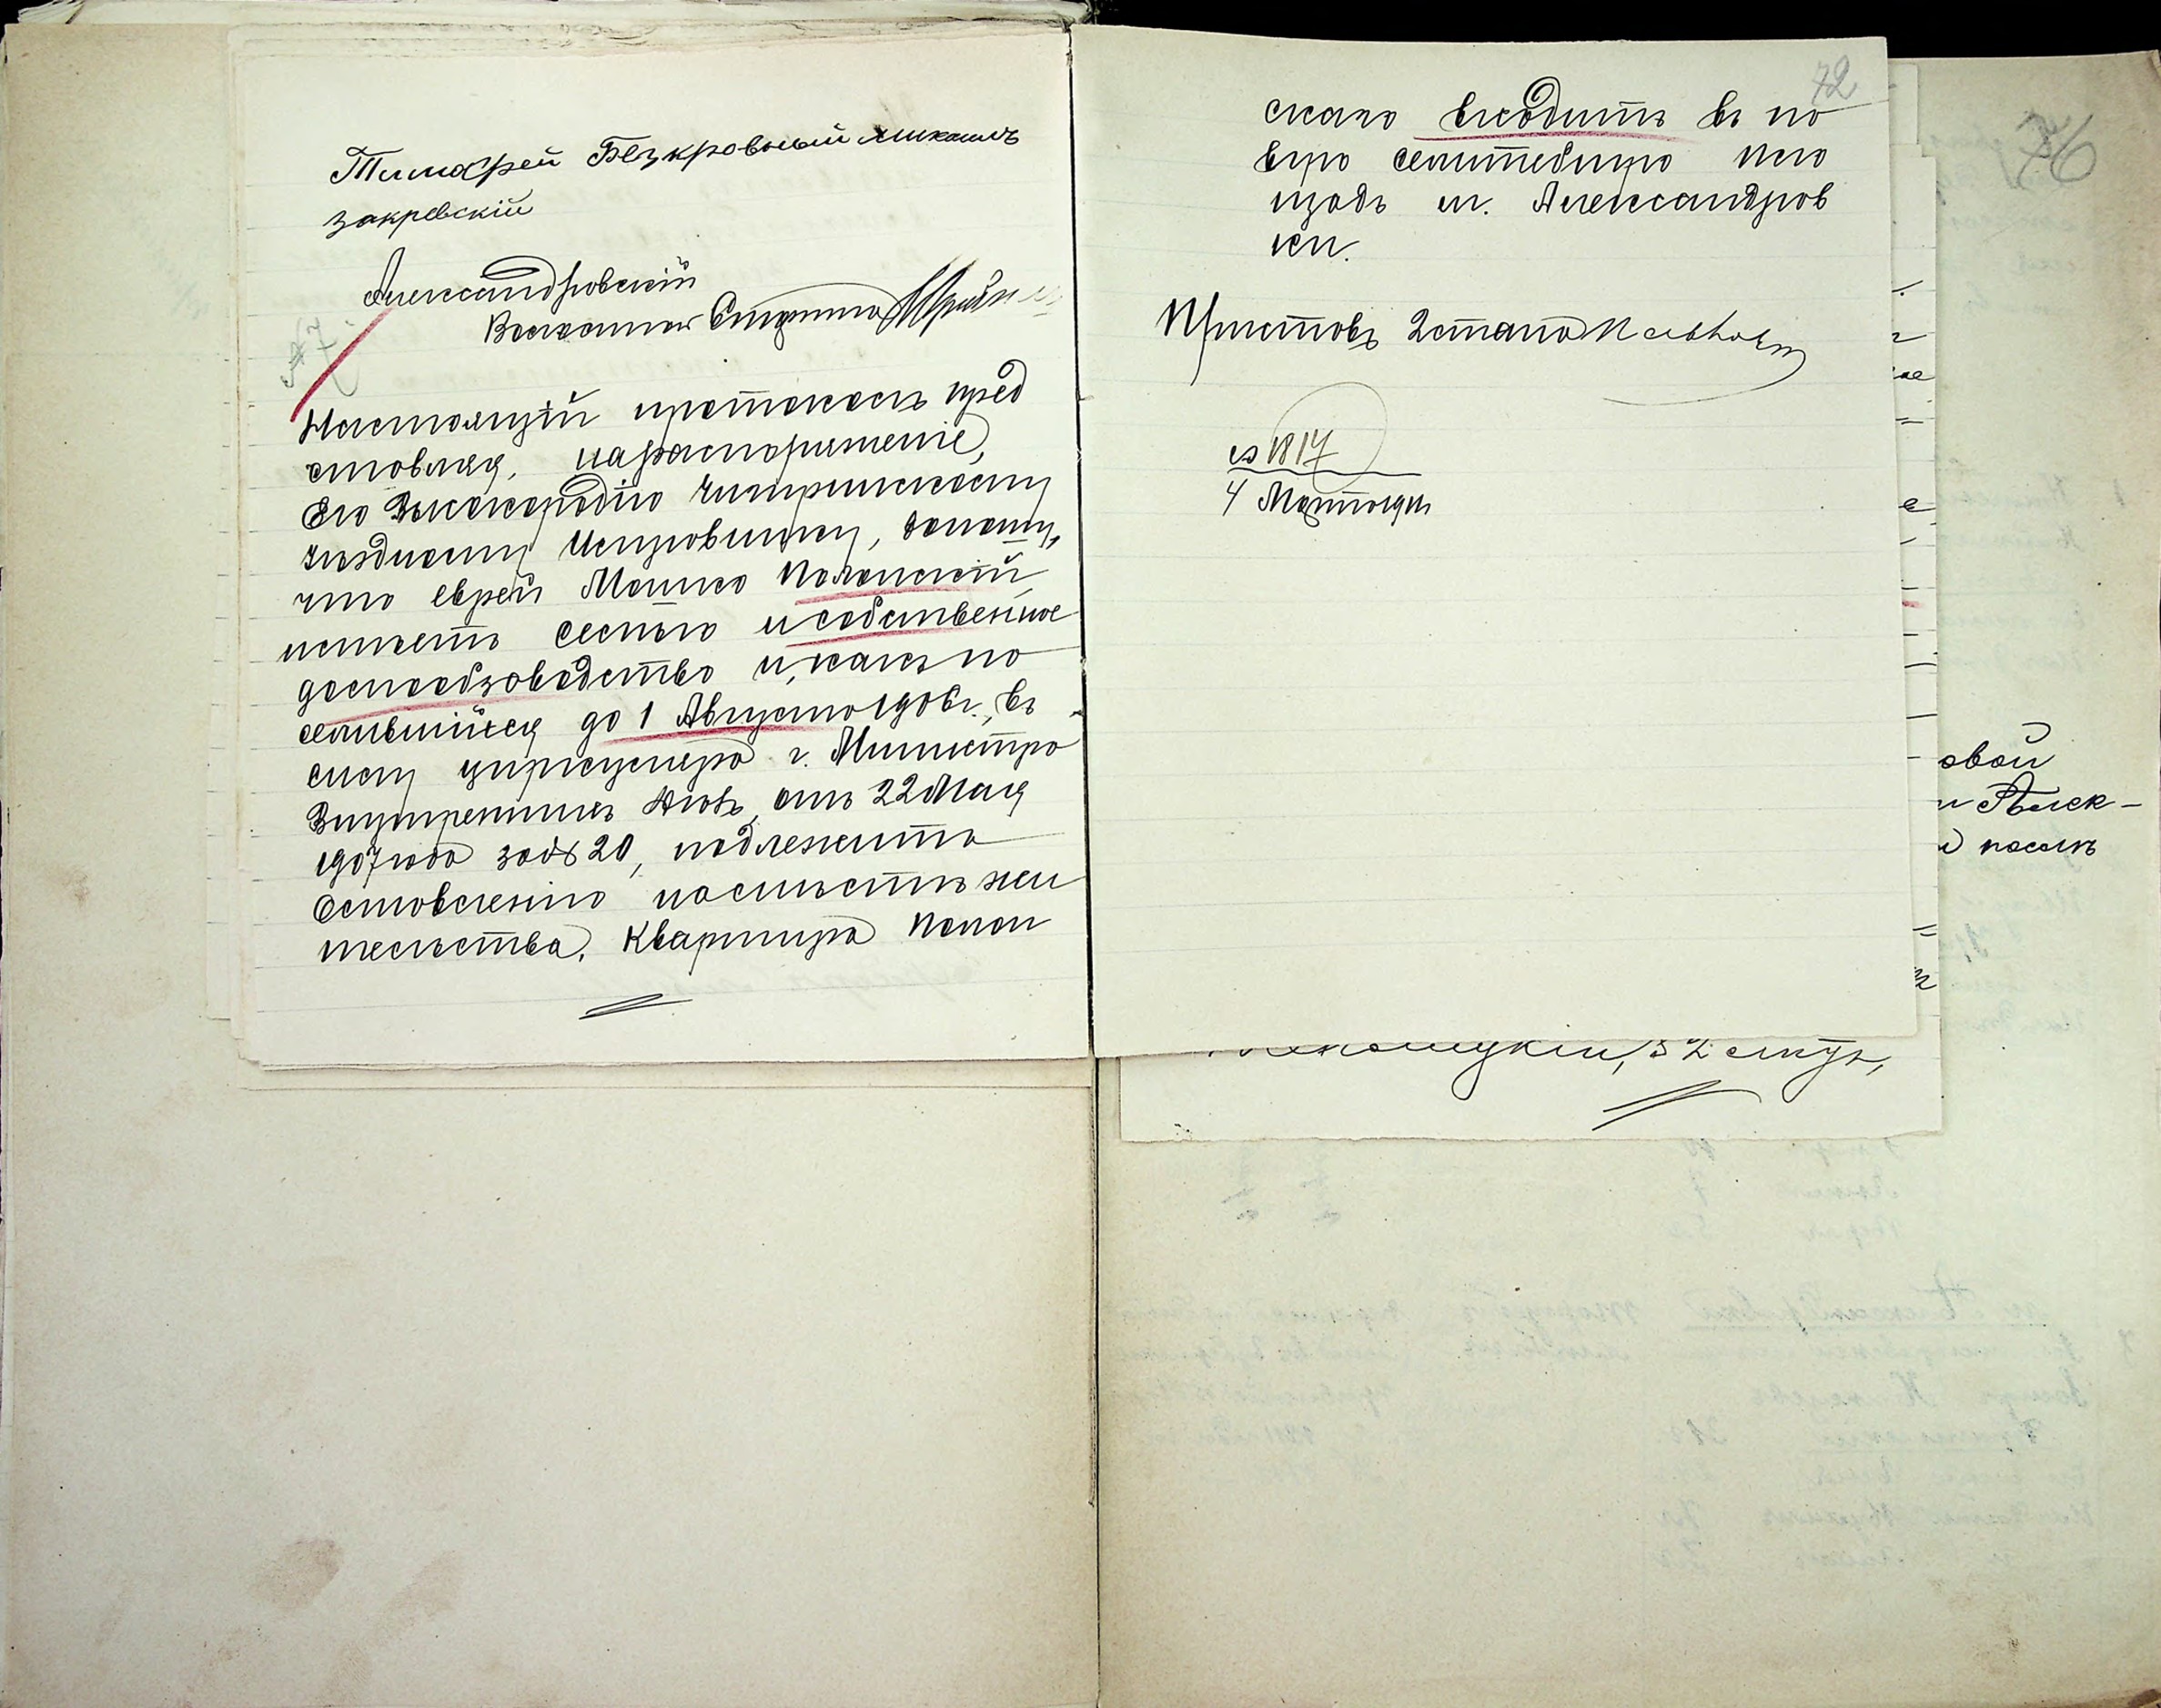 Тимофей Безкровный Михаилъ
Закревскій
Александровскій
Волостной Старшина
47.
Настоящій протоколъ пред
ставляя, на распоряженіе,
Его Высокородію Чигиринскому
Уѣздному Исправнику, доношу,
что еврей Мошко Полонскій
имѣетъ семью и собственное
домообзаводство и, какъ по
селившійся до 1 Августа 1906 г., въ
силу циркуляра г. Министра
Внутреннихъ Дѣлъ отъ 22 Мая
1907 года за № 20, подлежитъ
оставленію на мѣстѣ жи
тельства. Квартира Полон
72
скаго входитъ въ но
вую селитебную пло
щадь м. Александров
ки.
Приставъ 2 стана
№ 1817
4 Марта
76
овой
и Алек-
посел
32 лѣтъ,